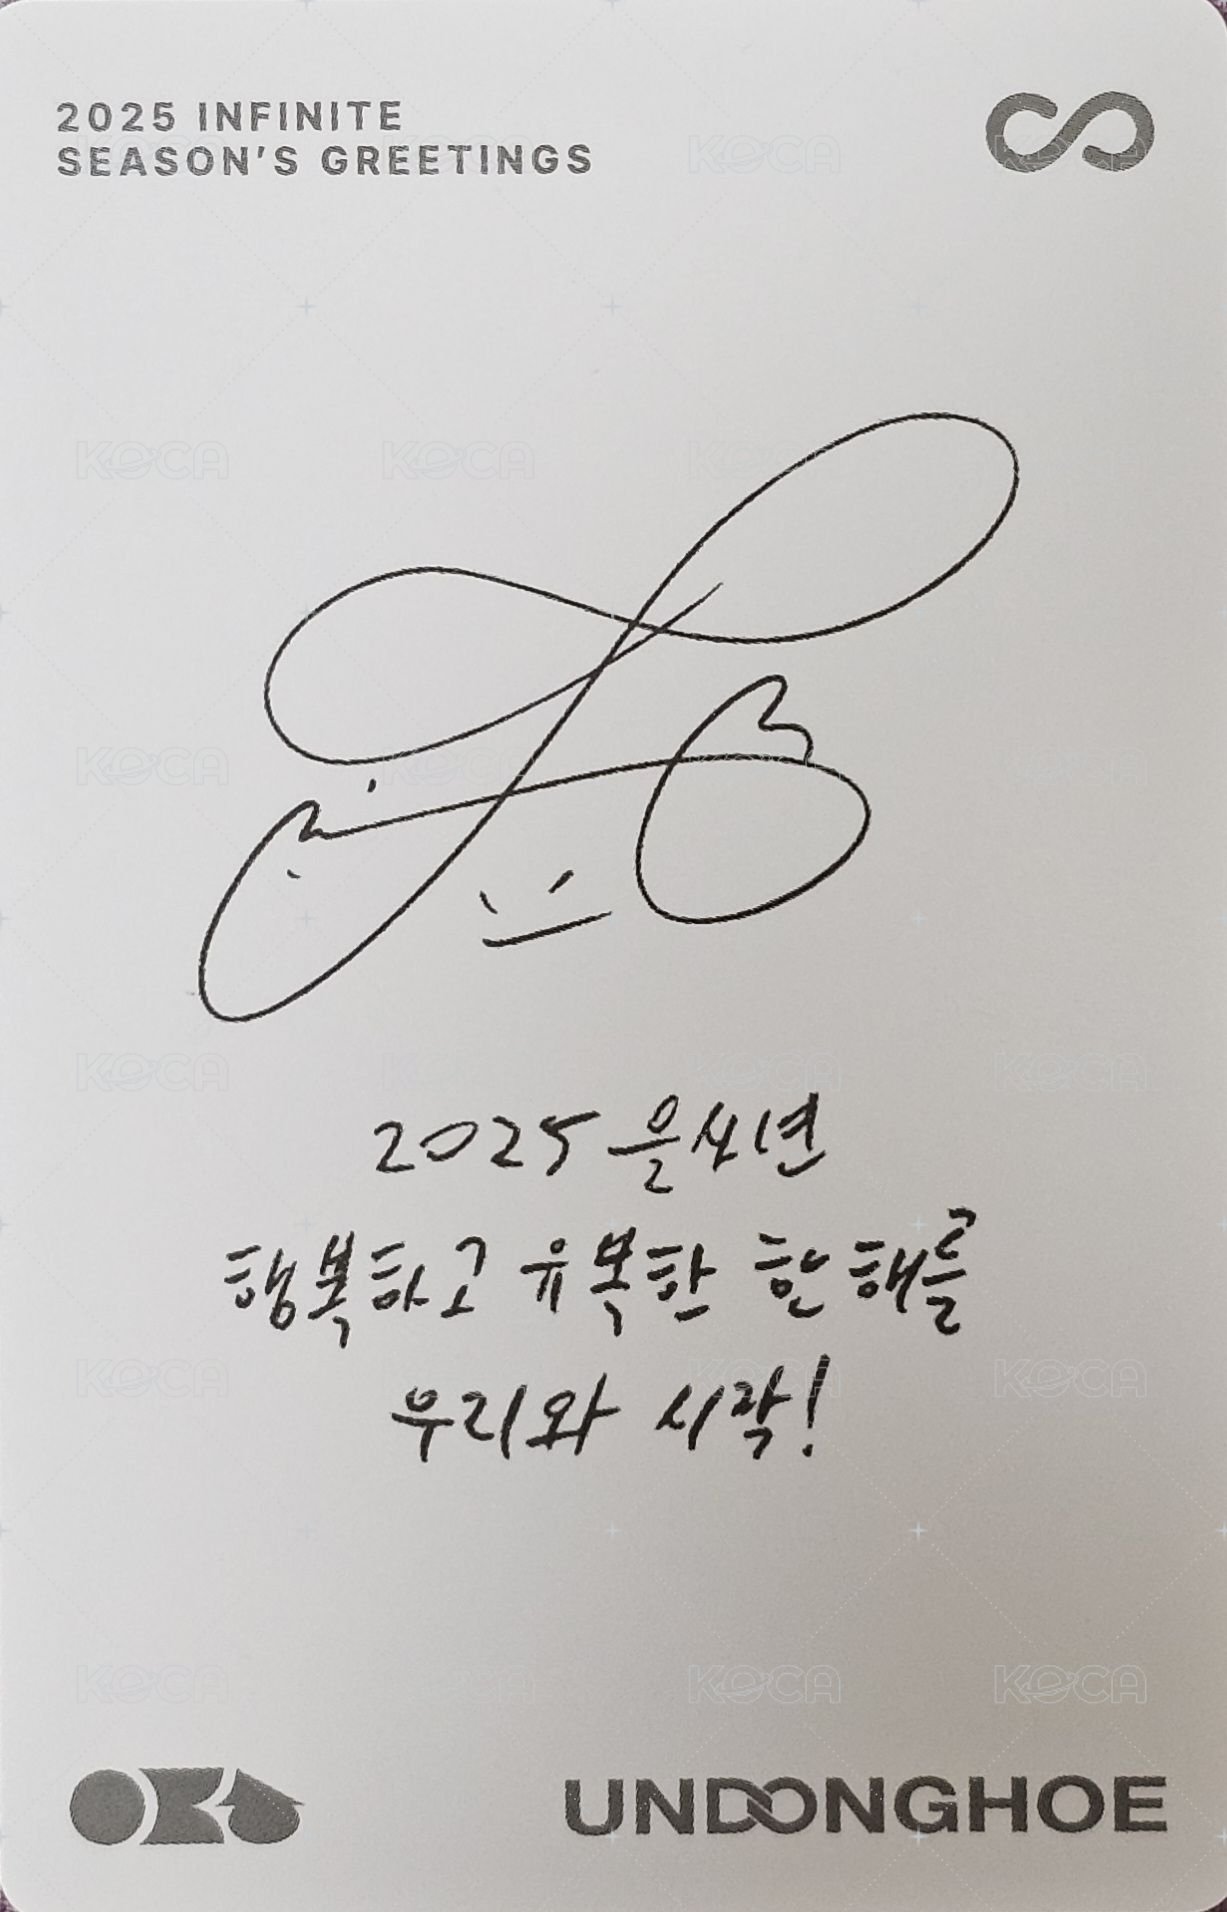 2025 INFINITE
SEASON'S GREETINGS
KOCA
2025 을사년
행복하고 유복한 한 해를
우리와 시작!
UNDONGHOE